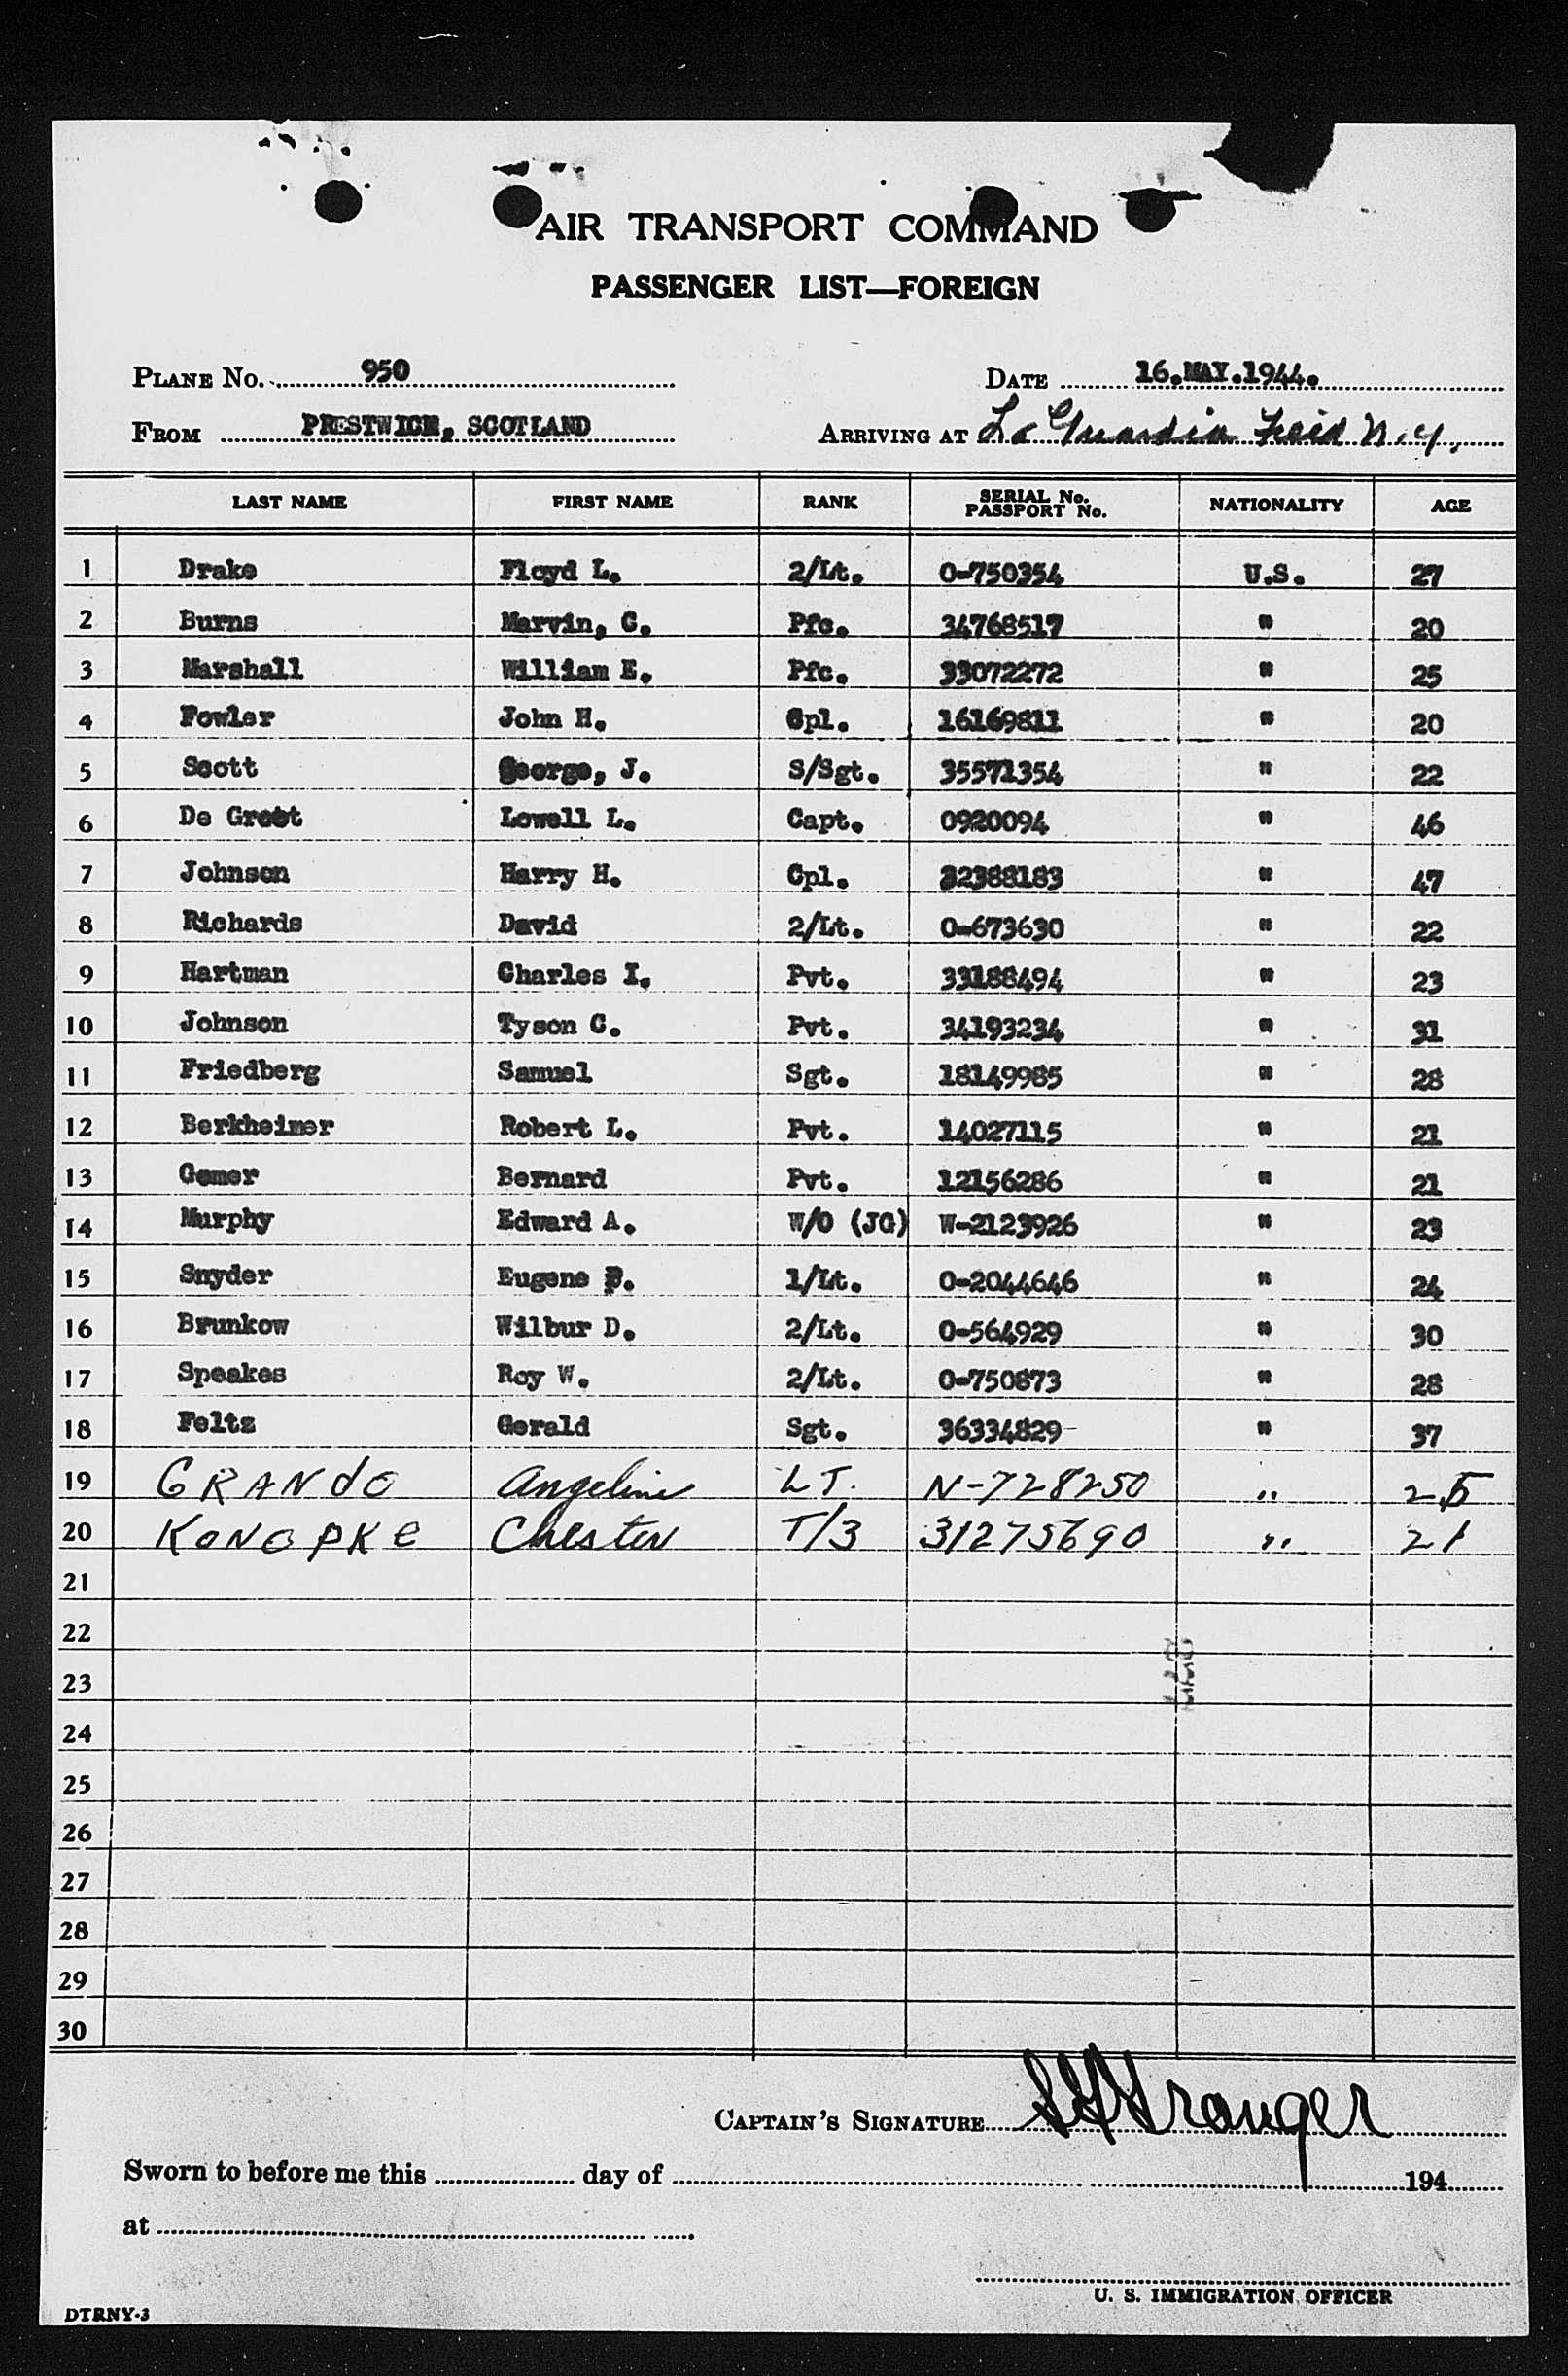 AIR TRANSPORT COMMAND
PASSENGER LIST—FOREIGN
PLANE No. 950 DATE 16.MAY.1944.
FROM PRESTWICK, SCOTLAND ARRIVING AT La Guardia Feild N.Y.
LAST NAME FIRST NAME RANK SERIAL No. PASSPORT No. NATIONALITY AGE
1 Drake Floyd L. 2/Lt. O-750354 U.S. 27
2 Burns Marvin, C. Pfc. 34768517 " 20
3 Marshall William E. Pfc. 33072272 " 25
4 Fowler John H. Cpl. 16169811 " 20
5 Scott George, J. S/Sgt. 35571354 " 22
6 De Groot Lowell L. Capt. 0920094 " 46
7 Johnson Harry H. Cpl. 32388183 " 47
8 Richards David 2/Lt. O-673630 " 22
9 Hartman Charles I. Pvt. 33188494 " 23
10 Johnson Tyson C. Pvt. 34193234 " 31
11 Friedberg Samuel Sgt. 18149985 " 28
12 Berkheimer Robert L. Pvt. 14027115 " 21
13 Gomer Bernard Pvt. 12156286 " 21
14 Murphy Edward A. W/O (JG) W-2123926 " 23
15 Snyder Eugene P. 1/Lt. O-2044646 " 24
16 Brunkow Wilbur D. 2/Lt. O-564929 " 30
17 Speakes Roy W. 2/Lt. O-750873 " 28
18 Feltz Gerald Sgt. 36334829 " 37
19 GRANdO Angeline LT. N-728250 " 25
20 KONOPKE Chester T/3 31275690 " 21
21
22
23
24
25
26
27
28
29
30
CAPTAIN'S SIGNATURE Granger
Sworn to before me this day of 194
at
U. S. IMMIGRATION OFFICER
DTRNY-3